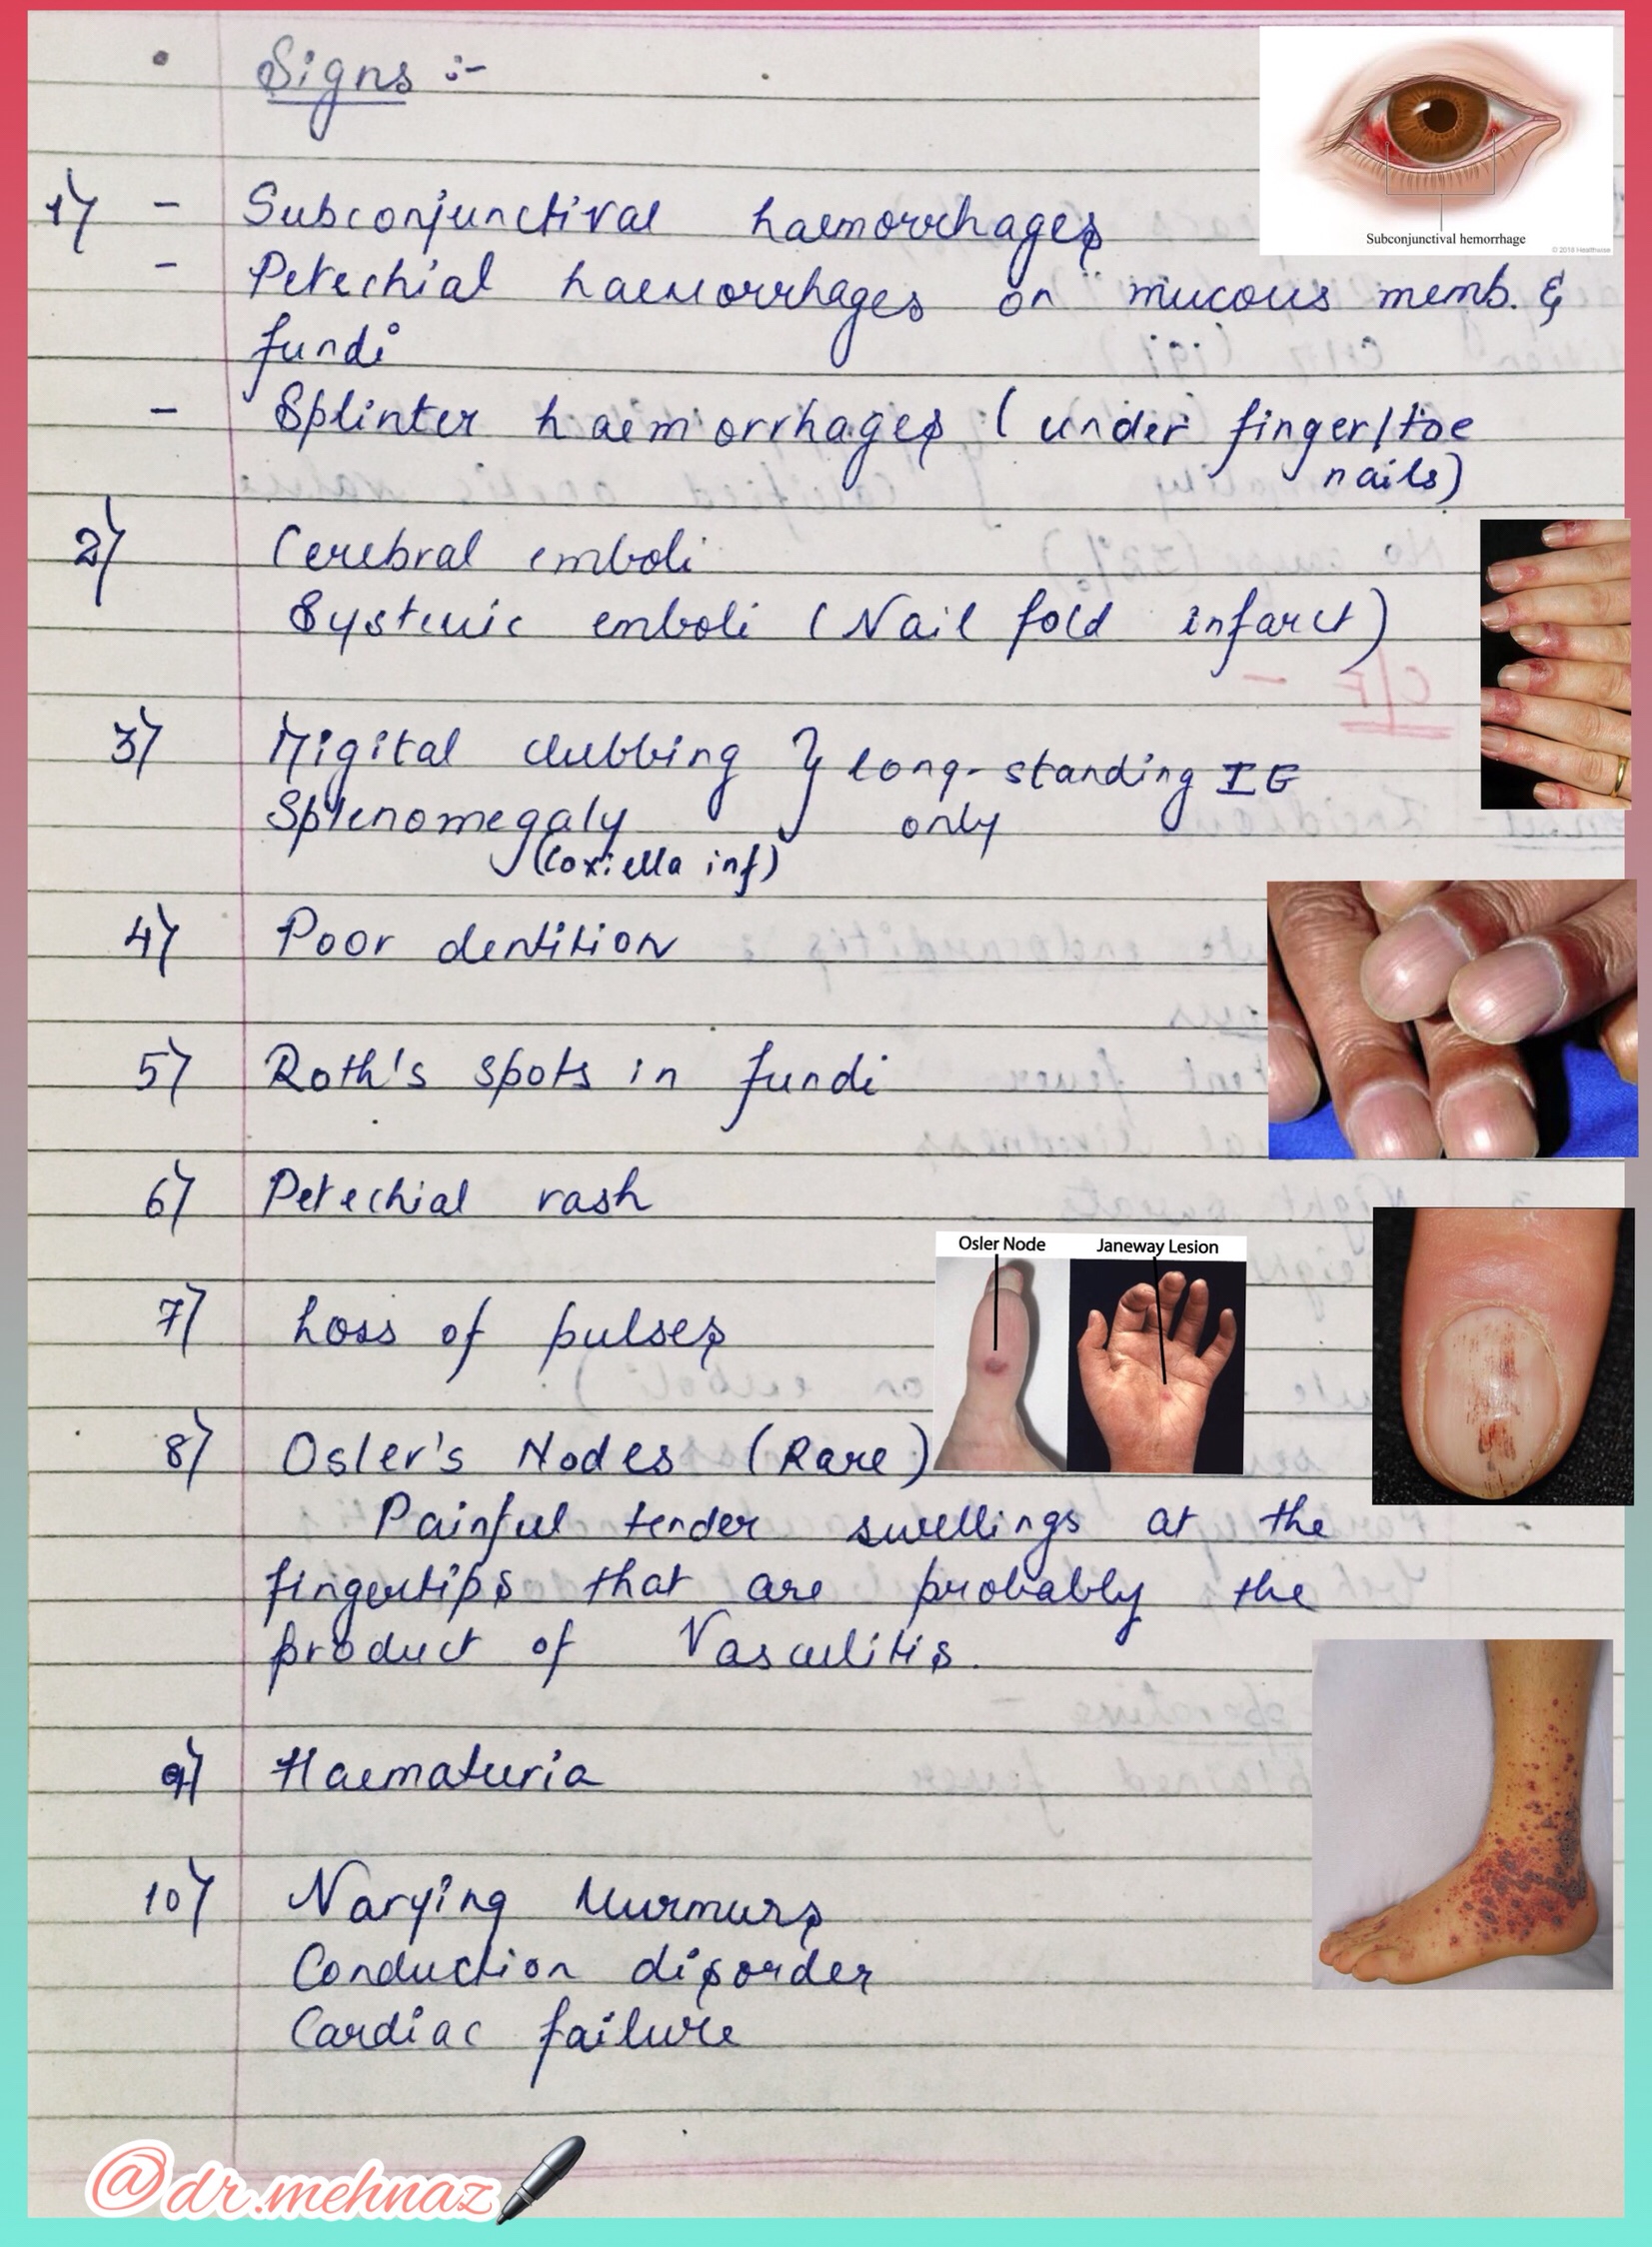 Signs :-
1) - Subconjunctival haemorrhages
- Petechial haemorrhages on mucous memb. &
fundi
- Splinter haemorrhages (under finger/toe
nails)
2) Cerebral emboli
Systemic emboli (Nail fold infarct)
3) Digital clubbing } long-standing IE
Splenomegaly only
(Coxiella inf)
4) Poor dentition
5) Roth's spots in fundi
6) Petechial rash
7) Loss of pulses
8) Osler's Nodes (Rare)
Painful tender swellings at the
fingertips that are probably the
product of Vasculitis.
9) Haematuria
10) Varying Murmurs
Conduction disorder
Cardiac failure
Subconjunctival hemorrhage
© 2018 Healthwise
Osler Node
Janeway Lesion
@dr.mehnaz